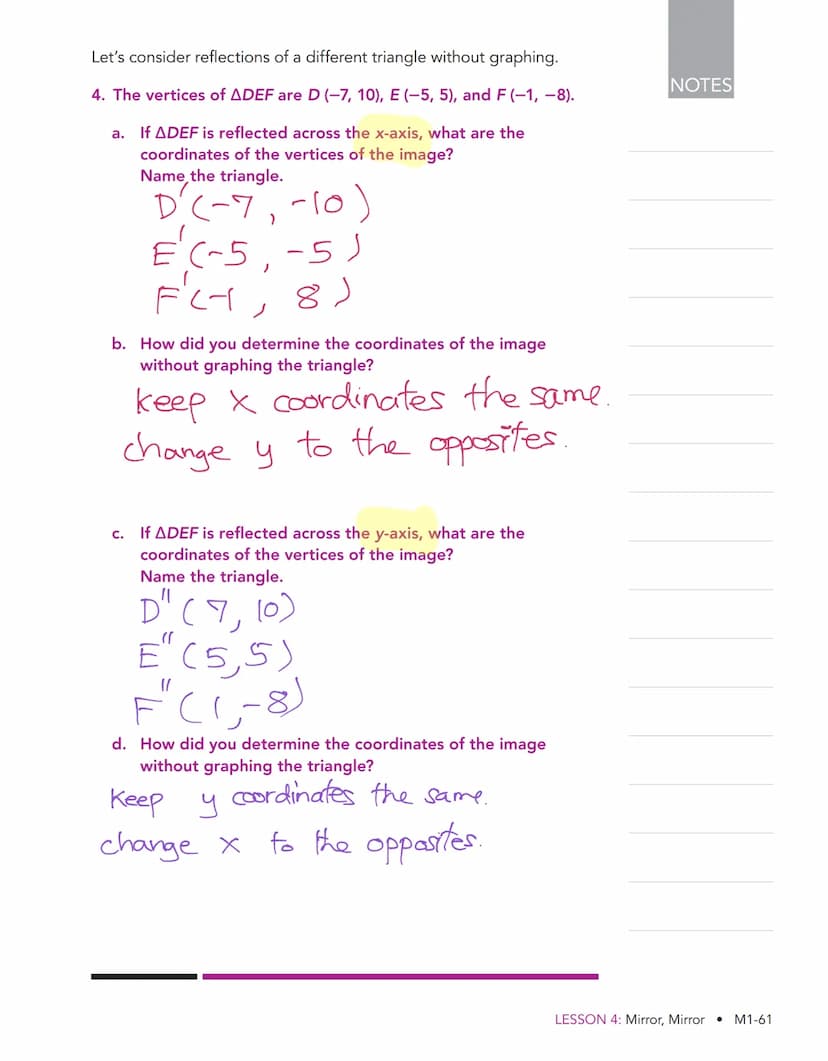 Let's consider reflections of a different triangle without graphing.
NOTES
4. The vertices of ΔDEF are D (−7, 10), E (−5, 5), and F (−1, −8).
a. If ΔDEF is reflected across the x-axis, what are the
coordinates of the vertices of the image?
Name the triangle.
D'(-7, -10)
E'(-5, -5)
F'(-1, 8)
b. How did you determine the coordinates of the image
without graphing the triangle?
keep x coordinates the same.
change y to the opposites.
c. If ΔDEF is reflected across the y-axis, what are the
coordinates of the vertices of the image?
Name the triangle.
D"(7, 10)
E"(5,5)
F"(1,-8)
d. How did you determine the coordinates of the image
without graphing the triangle?
Keep y coordinates the same.
change x to the opposites.
LESSON 4: Mirror, Mirror • M1-61